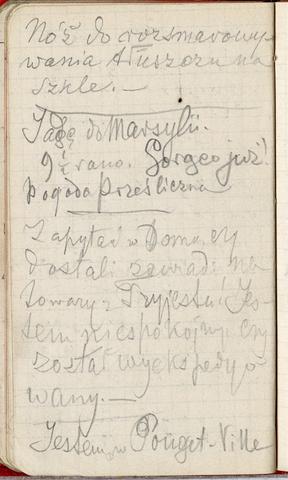 Nóż do rozsmarowy-
wania tłuszczu na
szkle. —
Jadę do Marsylii.
9½ rano. Gorąco już!
Pogoda prześliczna
Zapytać w Domu, czy
dostali zawiad. na
towary z Tryjestu! Jes-
tem niespokojny, czy
został wyekspedyo
wany. —
Jestem w Pouget-Ville